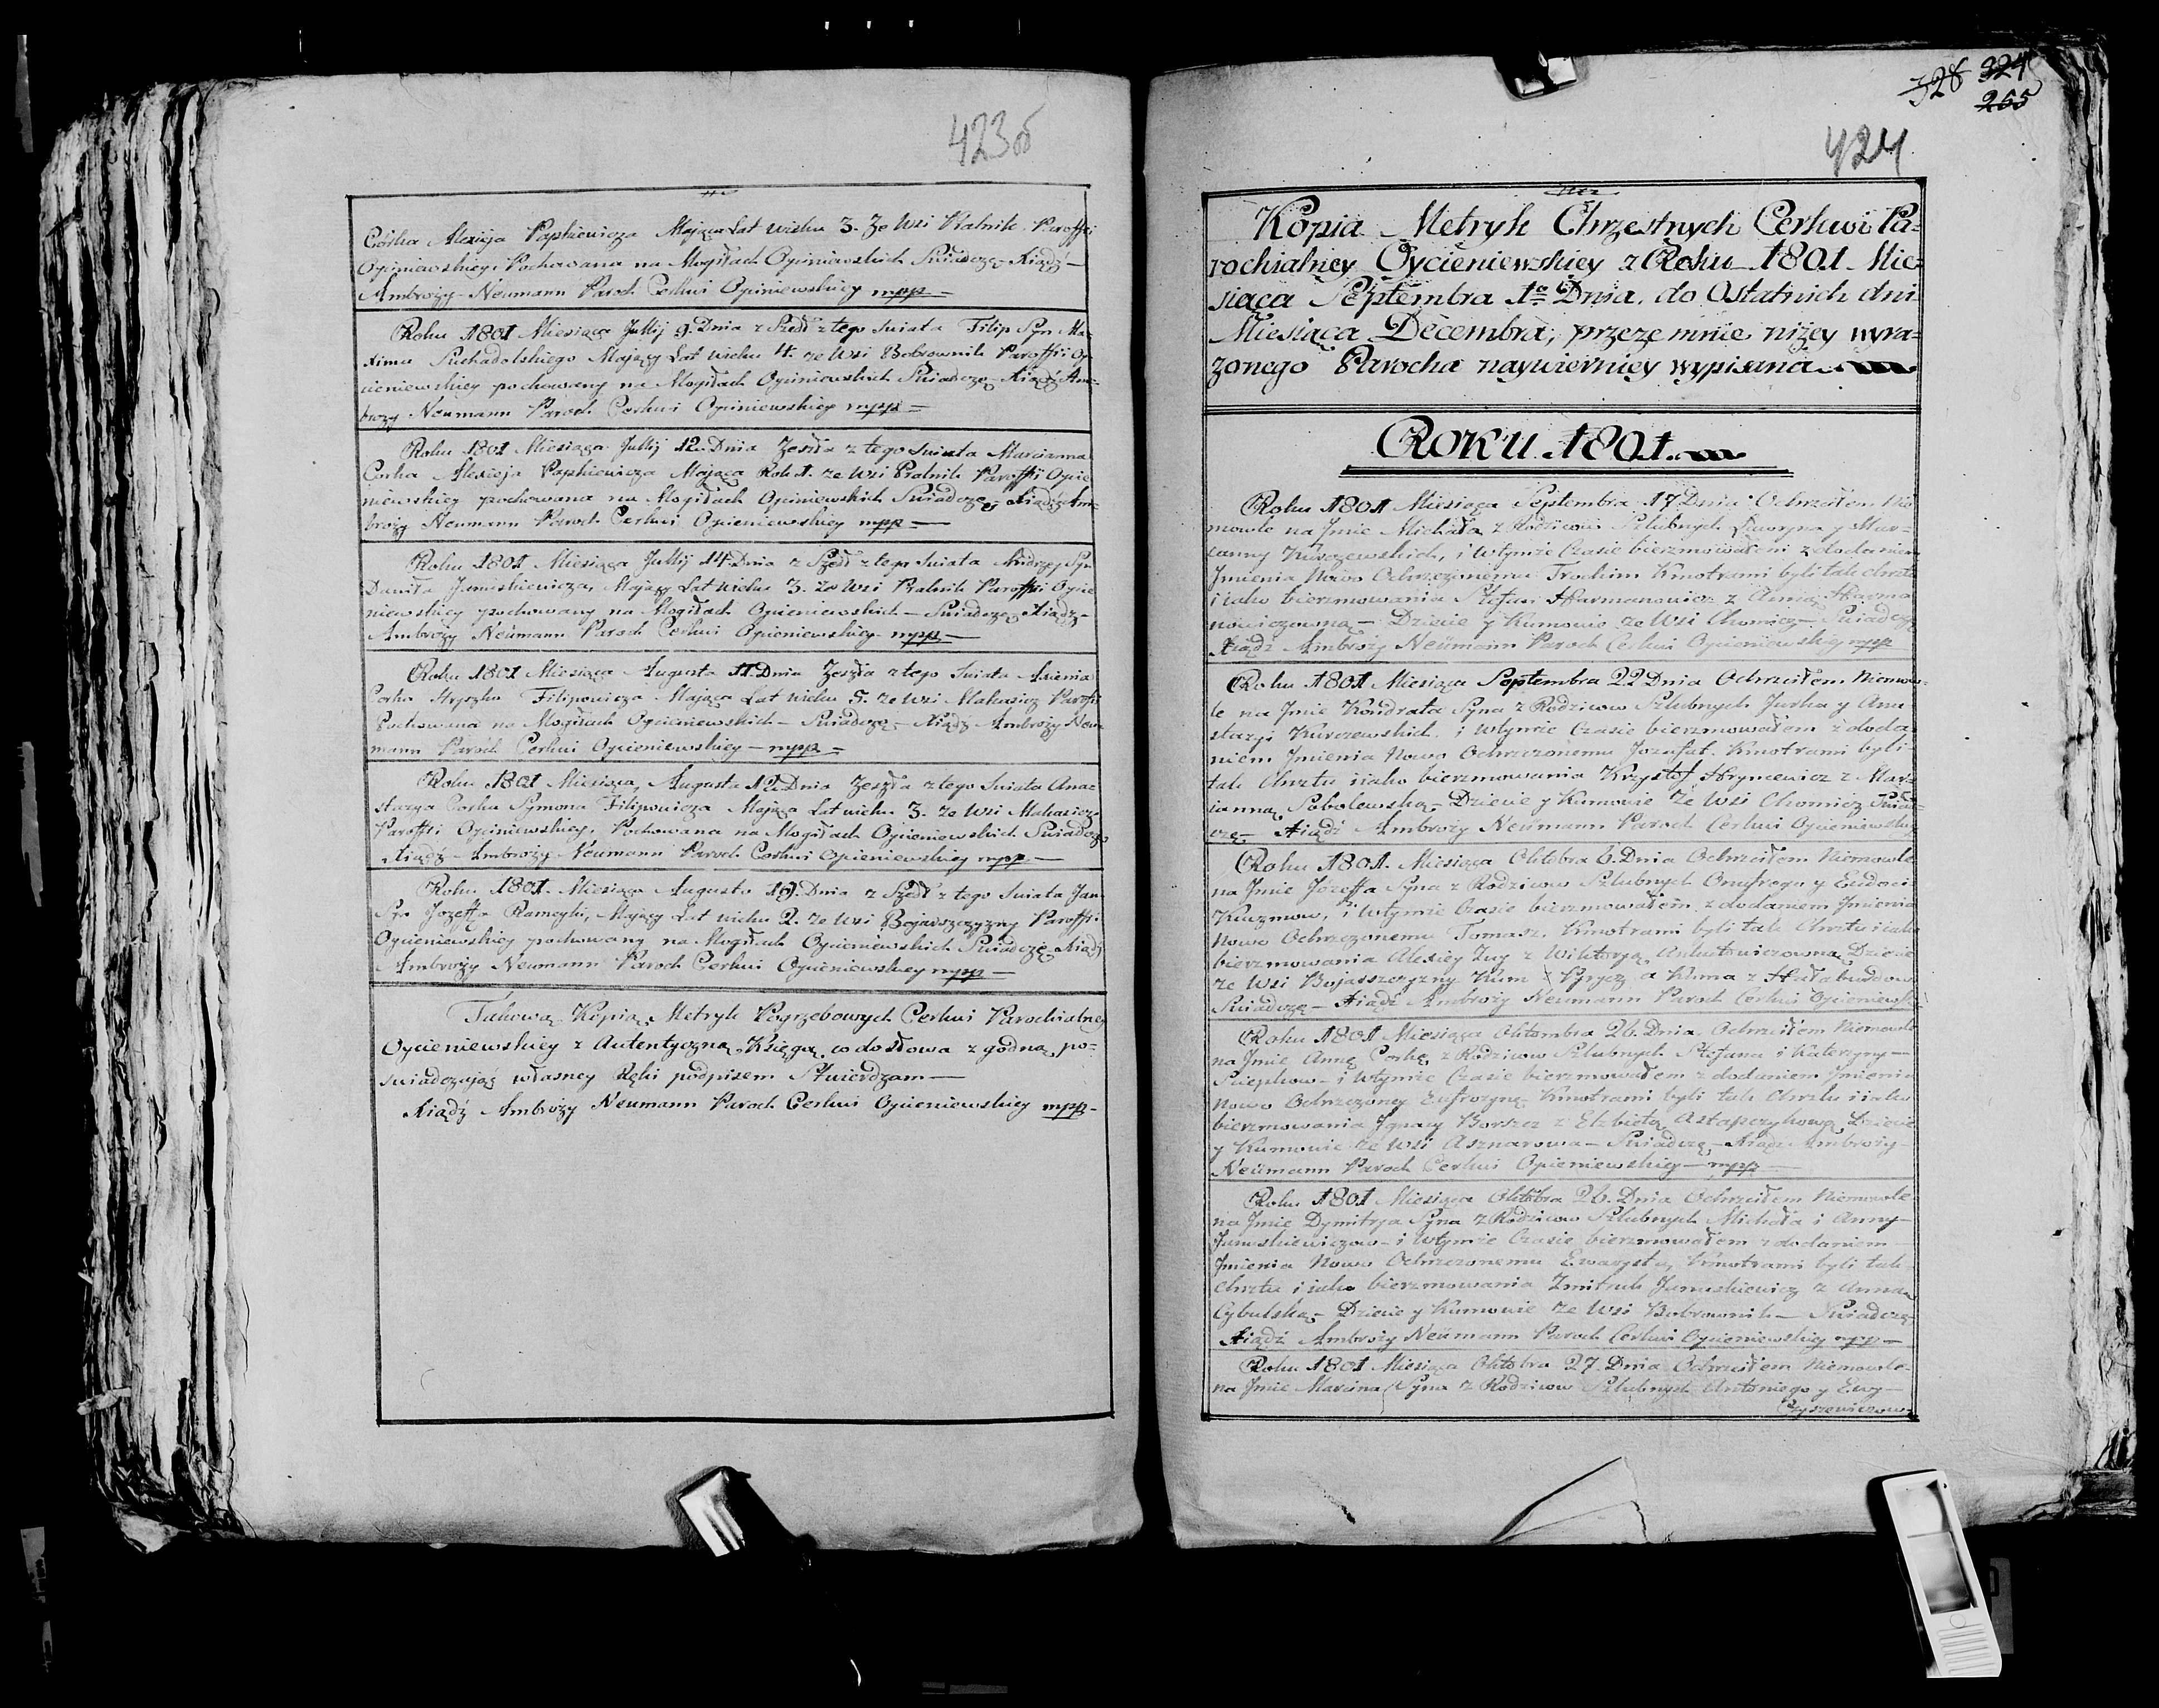 423об
Córka Alexieja Papkiewicza Mająca Lat wieku 3. Ze Wsi Pralnik Paroffii
Ogieniewskiey, Pochowana na Mogiłach Ogieniewskich Świadczę Xiądz
Ambroży Neumann Paroch Cerkwi Ogieniewskiey mpp
Roku 1801 Miesiąca Julij 9. Dnia z Szedł z tego Swiata Filip Syn Ma-
xima Suchadolskiego Mający Lat wieku 4. ze Wsi Bobrownik Paroffii Og-
ieniewskiey pochowany na Mogiłach Ogieniewskich Świadczę Xiądz Am-
broży Neumann Paroch Cerkwi Ogieniewskiey mpp
Roku 1801 Miesiąca Julij 12. Dnia Zeszła z tego Swiata Marcianna
Corka Alexieja Papkiewicza Mająca Rok 1. ze Wsi Pralnik Paroffii Ogie-
niewskiey pochowana na Mogiłach Ogieniewskich Świadczę Xiądz Am-
broży Neumann Paroch Cerkwi Ogieniewskiey mpp
Roku 1801 Miesiąca Julij 14 Dnia z Szedł z tego Swiata Andrzey Syn
Daniła Januszkiewicza, Mający Lat wieku 3. ze Wsi Pralnik Paroffii Ogie
niewskiey pochowany na Mogiłach Ogieniewskich Świadczę Xiądz
Ambroży Neumann Paroch Cerkwi Ogieniewskiey mpp
Roku 1801 Miesiąca Augusta 11. Dnia Zeszła z tego Swiata Axienia
Corka Hryszka Filipowicza Mająca Lat wieku 5. ze Wsi Makasicz Paroffii
Pochowana na Mogiłach Ogieniewskich Świadczę Xiądz Ambroży Neu-
mann Paroch Cerkwi Ogieniewskiey mpp
Roku 1801 Miesiąca, Augusta 12. Dnia Zeszła z tego Swiata Anas-
stazya Corka Symona Filipowicza Mająca Lat wieku 3. ze Wsi Makasicz
Paroffii Ogieniewskiey, Pochowana na Mogiłach Ogieniewskich Świadczę
Xiądz Ambroży Neumann Paroch Cerkwi Ogieniewskiey mpp
Roku 1801. Miesiąca Augusta 19. Dnia z Szedł z tego Swiata Jan
Syn Jozeffa Mający Lat wieku 2. ze Wsi Bojarszczyzny Paroffii
Ogieniewskiey pochowany na Mogiłach Ogieniewskich Świadczę Xiądz
Ambroży Neumann Paroch Cerkwi Ogieniewskiey mpp
Takową Kopią Metryk Pogrzebowych Cerkwi Parochialney
Ogieniewskiey z Autentyczną Księgą co do słowa zgodną po-
swiadczając własney Ręki podpisem Stwierdzam
Xiądz Ambroży Neumann Paroch Cerkwi Ogieniewskiey mpp
328 324
265
424
Kopia Metryk Chrzestnych Cerkwi Pa-
rochialney Ogicieniewskiey z Roku 1801 Mie-
siąca Septembra 1o Dnia do Ostatnich dni
Miesiąca Decembra, przeze mnie niżey wyra-
żonego Parocha naywierniey wypisana
ROKU 1801.
Roku 1801 Miesiąca Septembra 17 Dnia Ochrzciłem Nie
mowle na Jmie Michała z Rodziców Szlubnych y Mar-
yanny Kurczewskich, i wtymże Czasie bierzmowałem z dodaniem
Jmienia Nowo Ochrzczonemu Trochim Kmotrami byli tak chrztu
i iako bierzmowania Stefan Harmanowicz z Harma
nowiczowną Dziecie y Kumowie ze Wsi Chomicz Świadczę
Xiądz Ambroży Neümann Paroch Cerkwi Ogieniewskiey mpp
Roku 1801 Miesiąca Septembra 22 Dnia Ochrzciłem Niemow-
le na Jmie Kondrata Syna z Rodziców Szlubnych Jurka y Ana
stazyi Kurczewskich, i wtymże Czasie bierzmowałem z doda
niem Jmienia Nowo Ochrzczonemu Jozafat. Kmotrami byli
tak Chrztu i iako bierzmowania Krzysztof Hryncewicz z Mar-
ianną Sobolewską Dziecie y Kumowie ze Wsi Chomicz Świad-
czę Xiądz Ambroży Neümann Paroch Cerkwi Ogieniewskiey
Roku 1801. Miesiąca Oktobra 6. Dnia Ochrzciłem Niemowle
na Jmie Jozeffa Syna z Rodziców Szlubnych Onufrego y Eudoci
Kuzmow, i wtymże Czasie bierzmowałem z dodaniem Jmienia
Nowo Ochrzczonemu Tomasz. Kmotrami byli tak Chrztu i iako
bierzmowania Alexiey Zuy z Wiktorją Dziecie
ze Wsi Bojarszczyzny Kum z a Kuma z Hałaburdow
Świadczę Xiądz Ambroży Neümann Paroch Cerkwi Ogieniewski
Roku 1801 Miesiąca Oktombra 26. Dnia Ochrzciłem Niemowle
na Jmie Annę Corkę z Rodziców Szlubnych Stefana i Katerzyny
Sciepkow i wtymże Czasie bierzmowałem z dodaniem Jmienia
Nowo Ochrzczoney Eufrozynę Kmotrami byli tak Chrztu i iako
bierzmowania Jgnacy Borszcz z Elzbietą Astapczykową Dziecie
y Kumowie ze Wsi Asznarowa Świadczę Xiądz Ambroży
Neümann Paroch Cerkwi Ogieniewskiey mpp
Roku 1801 Miesiąca Oktobra 26. Dnia Ochrzciłem Niemowle
na Jmie Dymitrya Syna z Rodziców Szlubnych Michała i Anny
Januszkiewiczow i wtymże Czasie bierzmowałem z dodaniem
Jmienia Nowo Ochrzczonemu Ewarysty, Kmotrami byli tak
Chrztu i iako bierzmowania Zmitruk Januszkiewicz z Anną
Cybulską Dziecie y Kumowie ze Wsi Bobrownik Świadczę
Xiądz Ambroży Neümann Paroch Cerkwi Ogieniewskiey mpp
Roku 1801 Miesiąca Oktobra 27 Dnia Ochrzciłem Niemowle
na Jmie Marcina Syna z Rodziców Szlubnych Antoniego y Ewy
Czyszewiczow